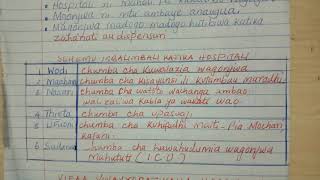 Hospitali ni mahali pa
Mgonjwa ni mtu ambaye anaugua
Magonjwa madogo madogo hutibiwa katika
zahanati au dispensari
SEHEMU MBALIMBALI KATIKA HOSPITALI
1 Wodi Chumba cha Kuwalazia wagonjwa
2 chumba cha kisayansi cha kutambua maradhi
3 chumba cha watoto wachanga ambao
wamezaliwa kabla ya wakati wao
4 Thieta chumba cha upasuaji
5 Ufuoni chumba cha kuhifadhi maiti - Pia Mochari,
kafani
6 chumba cha kuwahudumia wagonjwa
Mahututi (ICU)